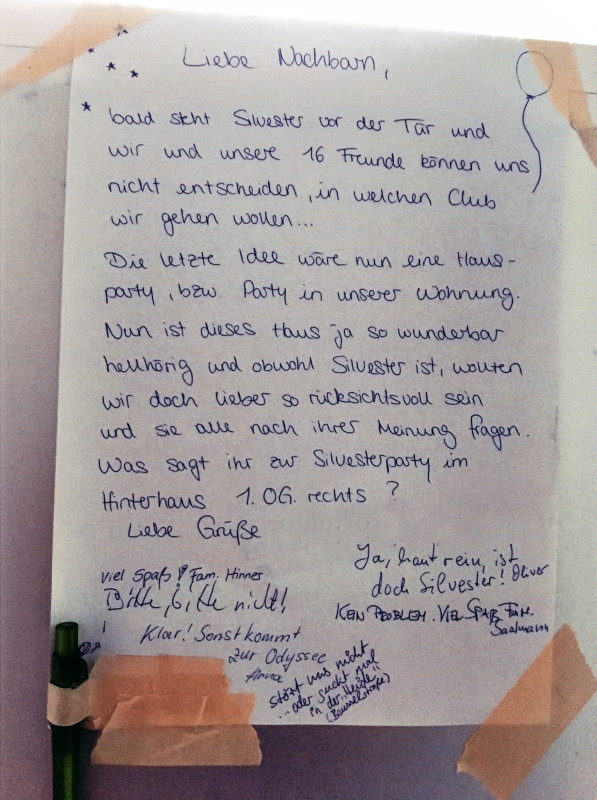 Liebe Nachbarn,
bald steht Silvester vor der Tür und
wir und unsere 16 Freunde können uns
nicht entscheiden, in welchen Club
wir gehen wollen...
Die letzte Idee wäre nun eine Haus-
party, bzw. Party in unserer Wohnung.
Nun ist dieses Haus ja so wunderbar
hellhörig und obwohl Silvester ist, wollten
wir doch lieber so rücksichtsvoll sein
und sie alle nach ihrer Meinung fragen.
Was sagt ihr zur Silvesterparty im
Hinterhaus 1. OG. rechts ?
Liebe Grüße
Viel Spaß! Fam. Hinner
Bitte, bitte nicht!
Ja, haut rein, ist
doch Silvester! Oliver
KEIN PROBLEM. VIEL SPAß FAM.
Saalmann
Klar! Sonst kommt
zur Odyssee
Anna
stört uns nicht
... oder sucht mal
in der "Heide"